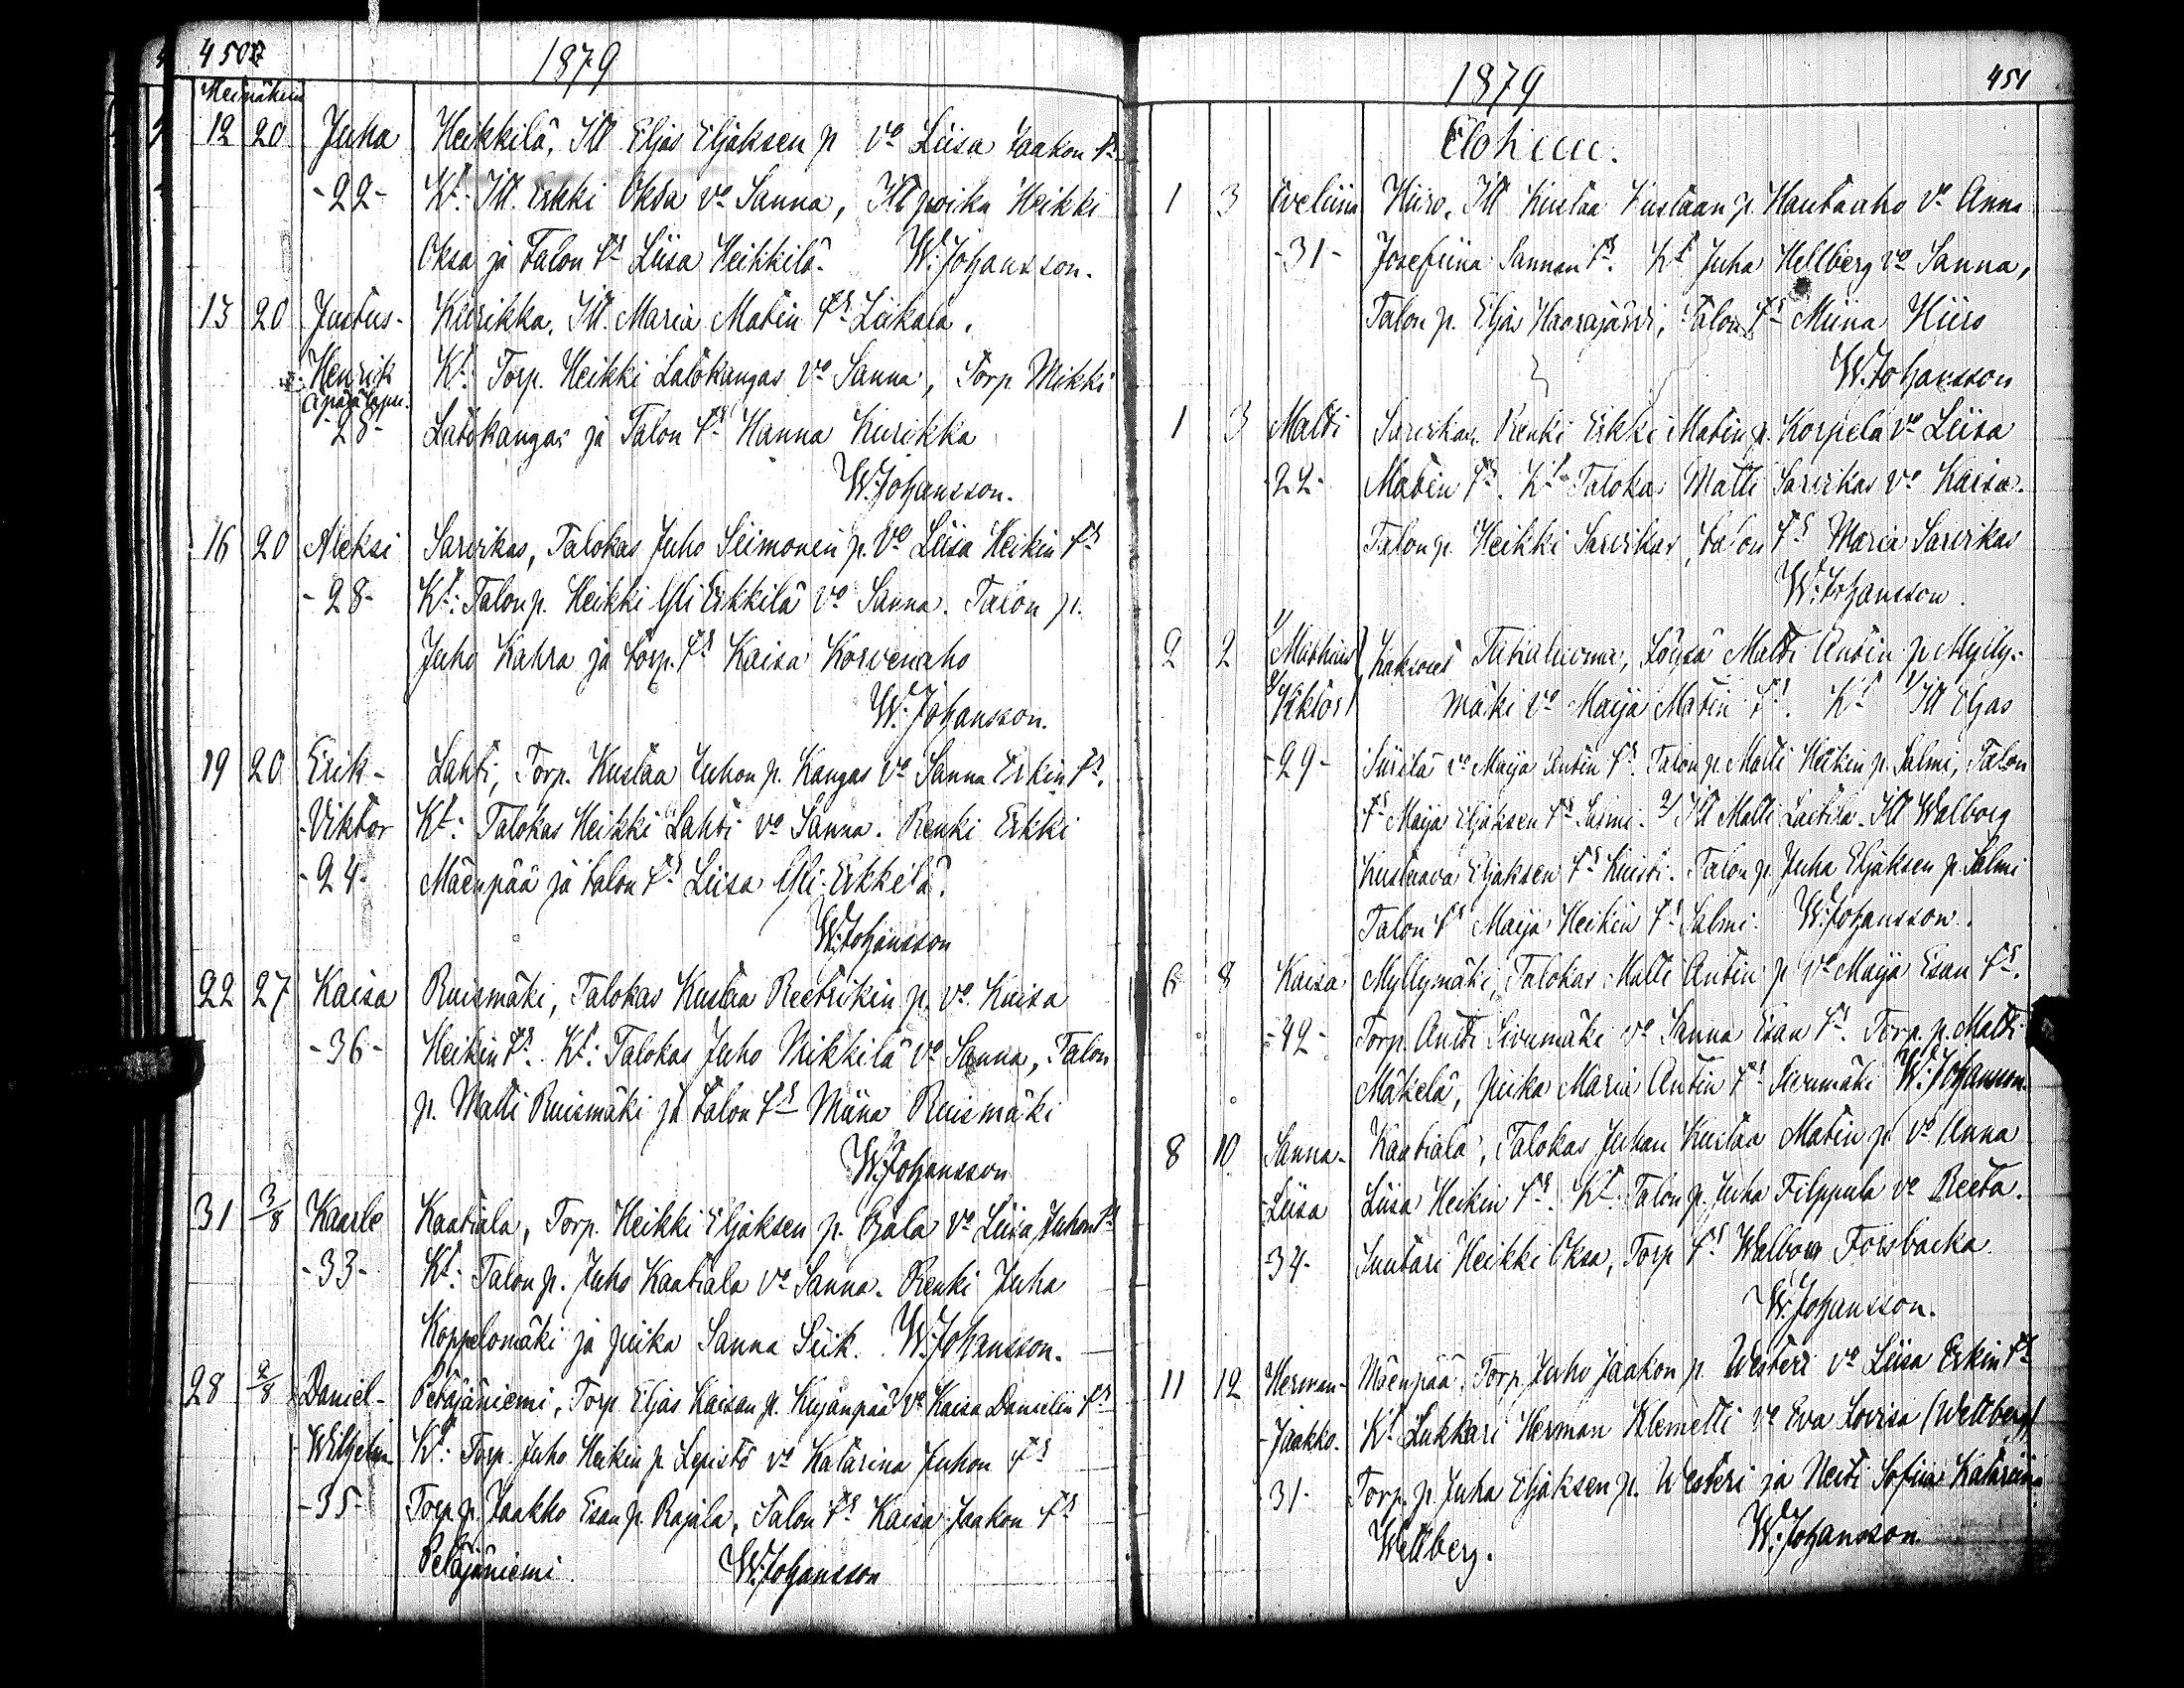 450
1879
Heinäkuu
12 20 Juha Heikkilä, Itl Eljas Eljaksen p. vo Liisa Jaakon tr
-22- Kt: Itl. Erkki Oksa vo Sanna, Itl poika Heikki
Oksa ja Talon tr Liisa Heikkilä. W. Johansson.
13 20 Justus- Kurikka, Itl. Maria Matin tr Liikala.
Henrik Kt: Torp. Heikki Latokangas vo Sanna, Torp Mikki
äpärälapsi.
-28- Latokangas ja Talon tr Hanna Kurikka
W. Johansson.
16 20 Aleksi Sarvikas, Talokas Juho Siimonin p. vo Liisa Heikin tr
-28- Kt: Talon p. Heikki Yli Erkkilä vo Sanna. Talon p.
Juho Kahra ja torp. tr Kaisa Korvenaho
W. Johansson.
19 20 Erik- Lahti, Torp. Kustaa Juhon p. Kangas vo Sanna Erkin tr.
-Viktor Kt: Talokas Heikki Lahti vo Sanna. Renki Erkki
-24- Mäenpää ja talon tr Liisa Yli-Erkkilä.
W. Johansson
22 27 Kaisa Ruismäki, Talokas Kustaa Reetrikin p. vo Kaisa
-36- Heikin tr. Kt: Talokas Juho Mikkilä vo Sanna, Talon
p. Matti Ruismäki ja talon tr Miina Ruismäki
W. Johansson
31 3/8 Kaarle Kaatiala, Torp. Heikki Eljaksen p. Ojala vo Liisa Juhon tr
-33- Kt: Talon p. Juho Kaatiala vo Sanna. Renki Juha
Koppelomäki ja piika Sanna Siik. W. Johansson.
28 2/8 Daniel- Petäjäniemi, Torp Eljas Kaisan p. Kujanpää vo Kaisa Danielin tr
-Wilhelm Kt: Torp. Juho Heikin p Lepistö vo Katarina Juhon tr
-35- Torp p. Jaakko Esan p. Rajala, Talon tr Kaisa Jaakon tr
Petäjäniemi. W. Johansson
451
1879
Elokuu.
1 3 Eveliina Hiiro, Itl Kustaa Kustaan p. Hautaaho vo Anna
-31- Josefiina Sannan tr. Kt Juha Hellberg vo Sanna,
Talon p. Eljas Haarajärvi, Talon tr Miina Hiiro
W. Johansson
1 3 Matti Sarvikas. Renki Erkki Matin p. Korpela vo Liisa
-22- Matin tr. Kt Talokas Matti Sarvikas vo Kaisa.
Talon p. Heikki Sarvikas, talon tr Maria Sarvikas
W. Johansson.
2 2 1/ Mathias kaksoset Matti Antin p Mylly-
2/ Viktor mäki vo Maija Matin tr. Kt 1/ Itl Eljas
-29- vo Maija Antin tr. Talon p. Matti Heikin p. Salmi, Talon
tr Maija Eljaksen tr Salmi. 2/ Itl Matti Laitila. Itl Walborg
Kustaava Eljaksen tr Kuisti. Talon p. Juha Eljaksen p. Salmi
Talon tr Maija Heikin tr Salmi. W. Johansson.
6 8 Kaisa Myllymäki, Talokas Matti Antin p vo Maija Esan tr.
-42- Torp. Antti Sivumäki vo Sanna Esan tr. Torp. p. Matti
Mäkelä, piika Maria Antin tr Sivumäki W. Johansson.
8 10 Sanna- Kaatiala, Talokas Juhan Kustaa Matin p vo Anna
-Liisa Liisa Heikin tr. Kt: Talon p. Juha Filppula vo Reeta.
34- Suutari Heikki Oksa, Torp tr Walborg Forsbacka.
W. Johansson.
11 12 Herman- Mäenpää, Torp. Juho Jaakon p. Westeri vo Liisa Erkin tr
-Jaakko. Kt Lukkari Herman Klemetti vo Eva Lovisa (Wellberg)
31- Torp. p. Juha Eljaksen p. Westeri ja Neiti Sofiia Katariina
Wellberg. W. Johansson.